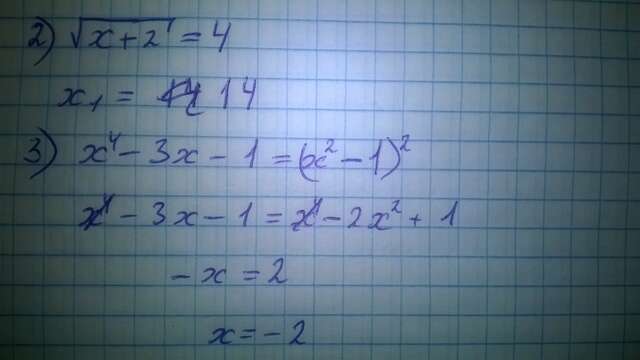 2) √x+2 = 4
x₁ = 14
3) x⁴ - 3x - 1 = (x² - 1)²
x⁴ - 3x - 1 = x⁴ - 2x² + 1
- x = 2
x = - 2